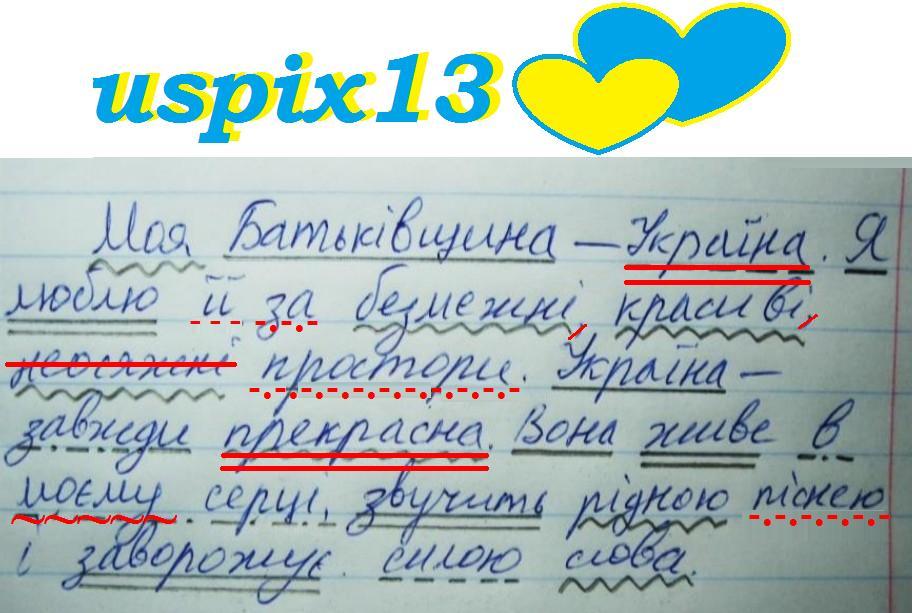 uspix13
Моя Батьківщина – Україна. Я
люблю її за безмежні, красиві,
неосяжні простори. Україна –
завжди прекрасна. Вона живе в
моєму серці, звучить рідною піснею
і заворожує силою слова.